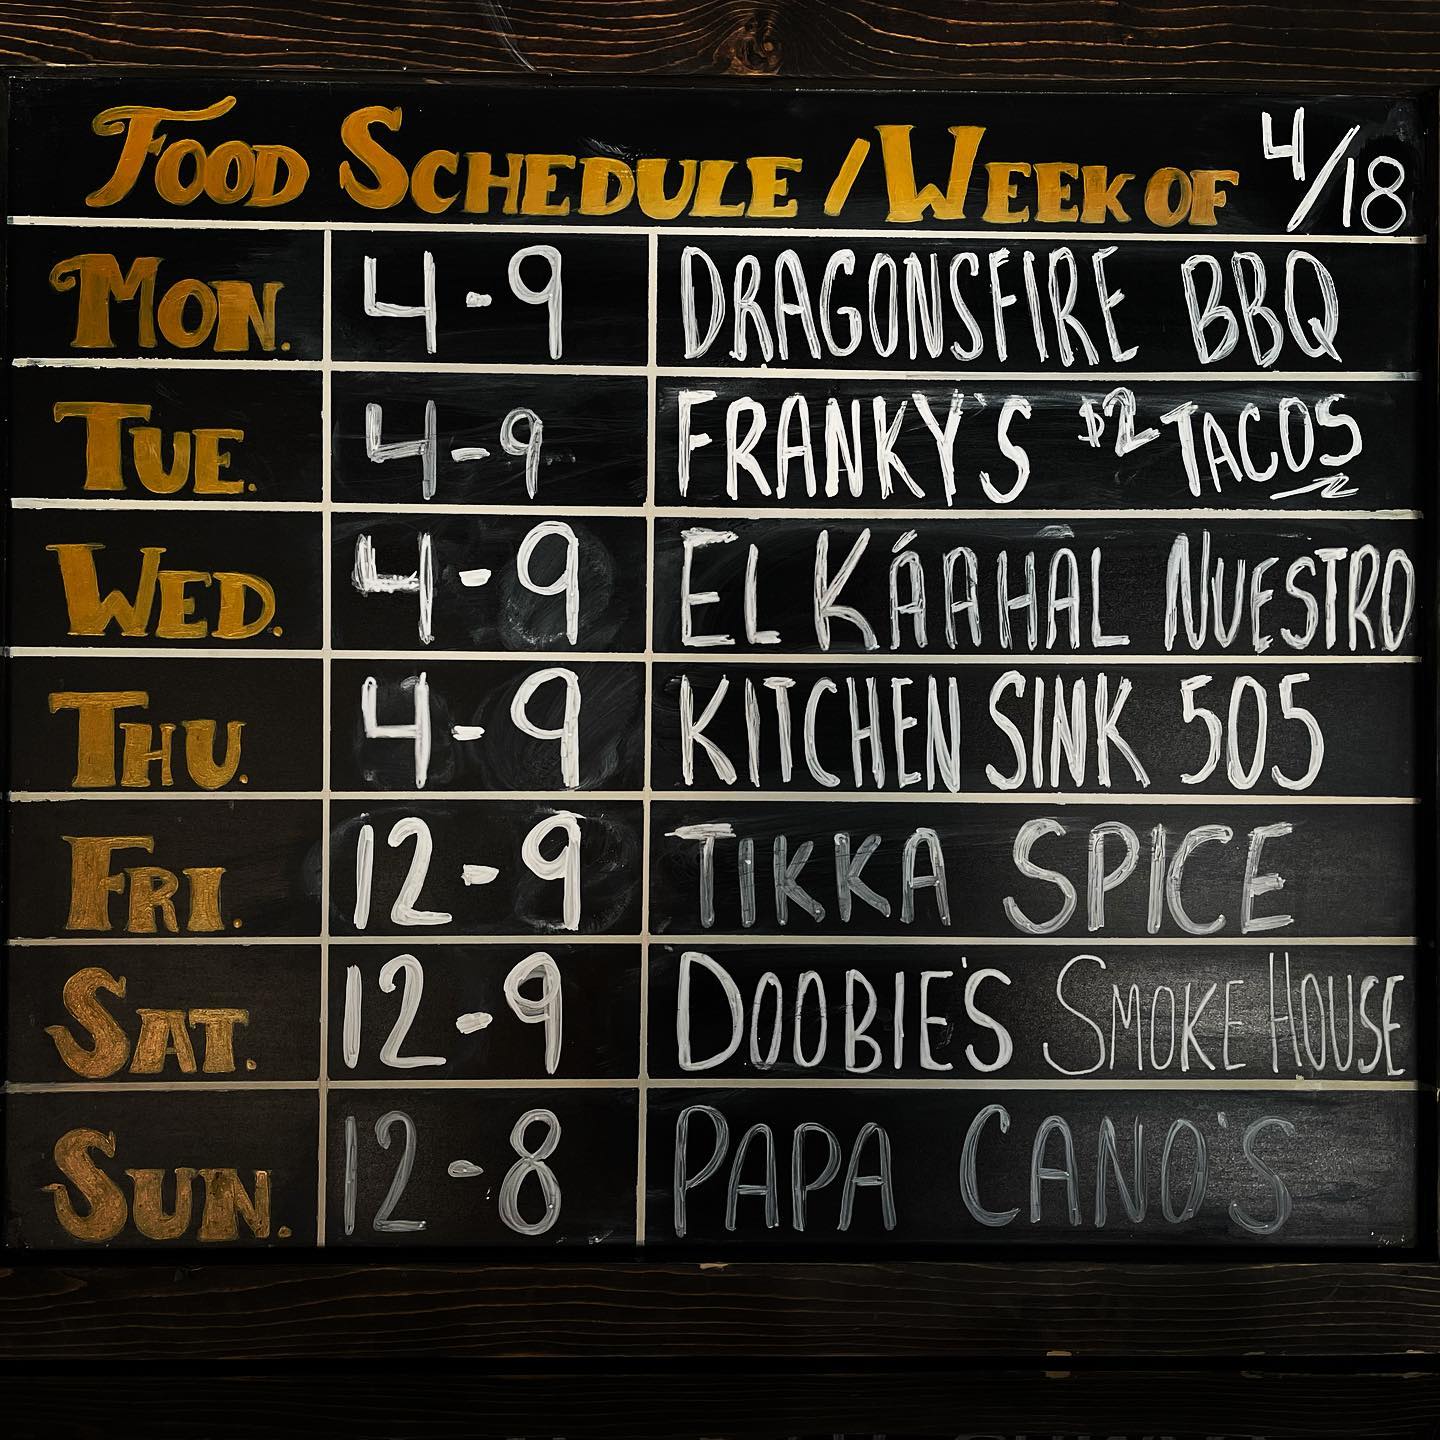 FOOD SCHEDULE / WEEK OF 4/18
MON. 4-9 DRAGONSFIRE BBQ
TUE. 4-9 FRANKY'S $2 TACOS
WED. 4-9 EL KÁAHAL NUESTRO
THU. 4-9 KITCHEN SINK 505
FRI. 12-9 TIKKA SPICE
SAT. 12-9 DOOBIE'S SMOKE HOUSE
SUN. 12-8 PAPA CANO'S